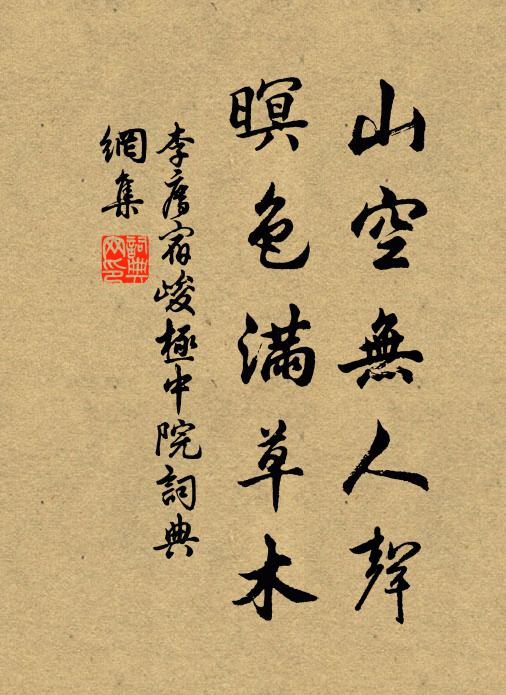 山空無人聲
暝色滿草木
李廌宿峻極中院詞典
網集
詞典網印